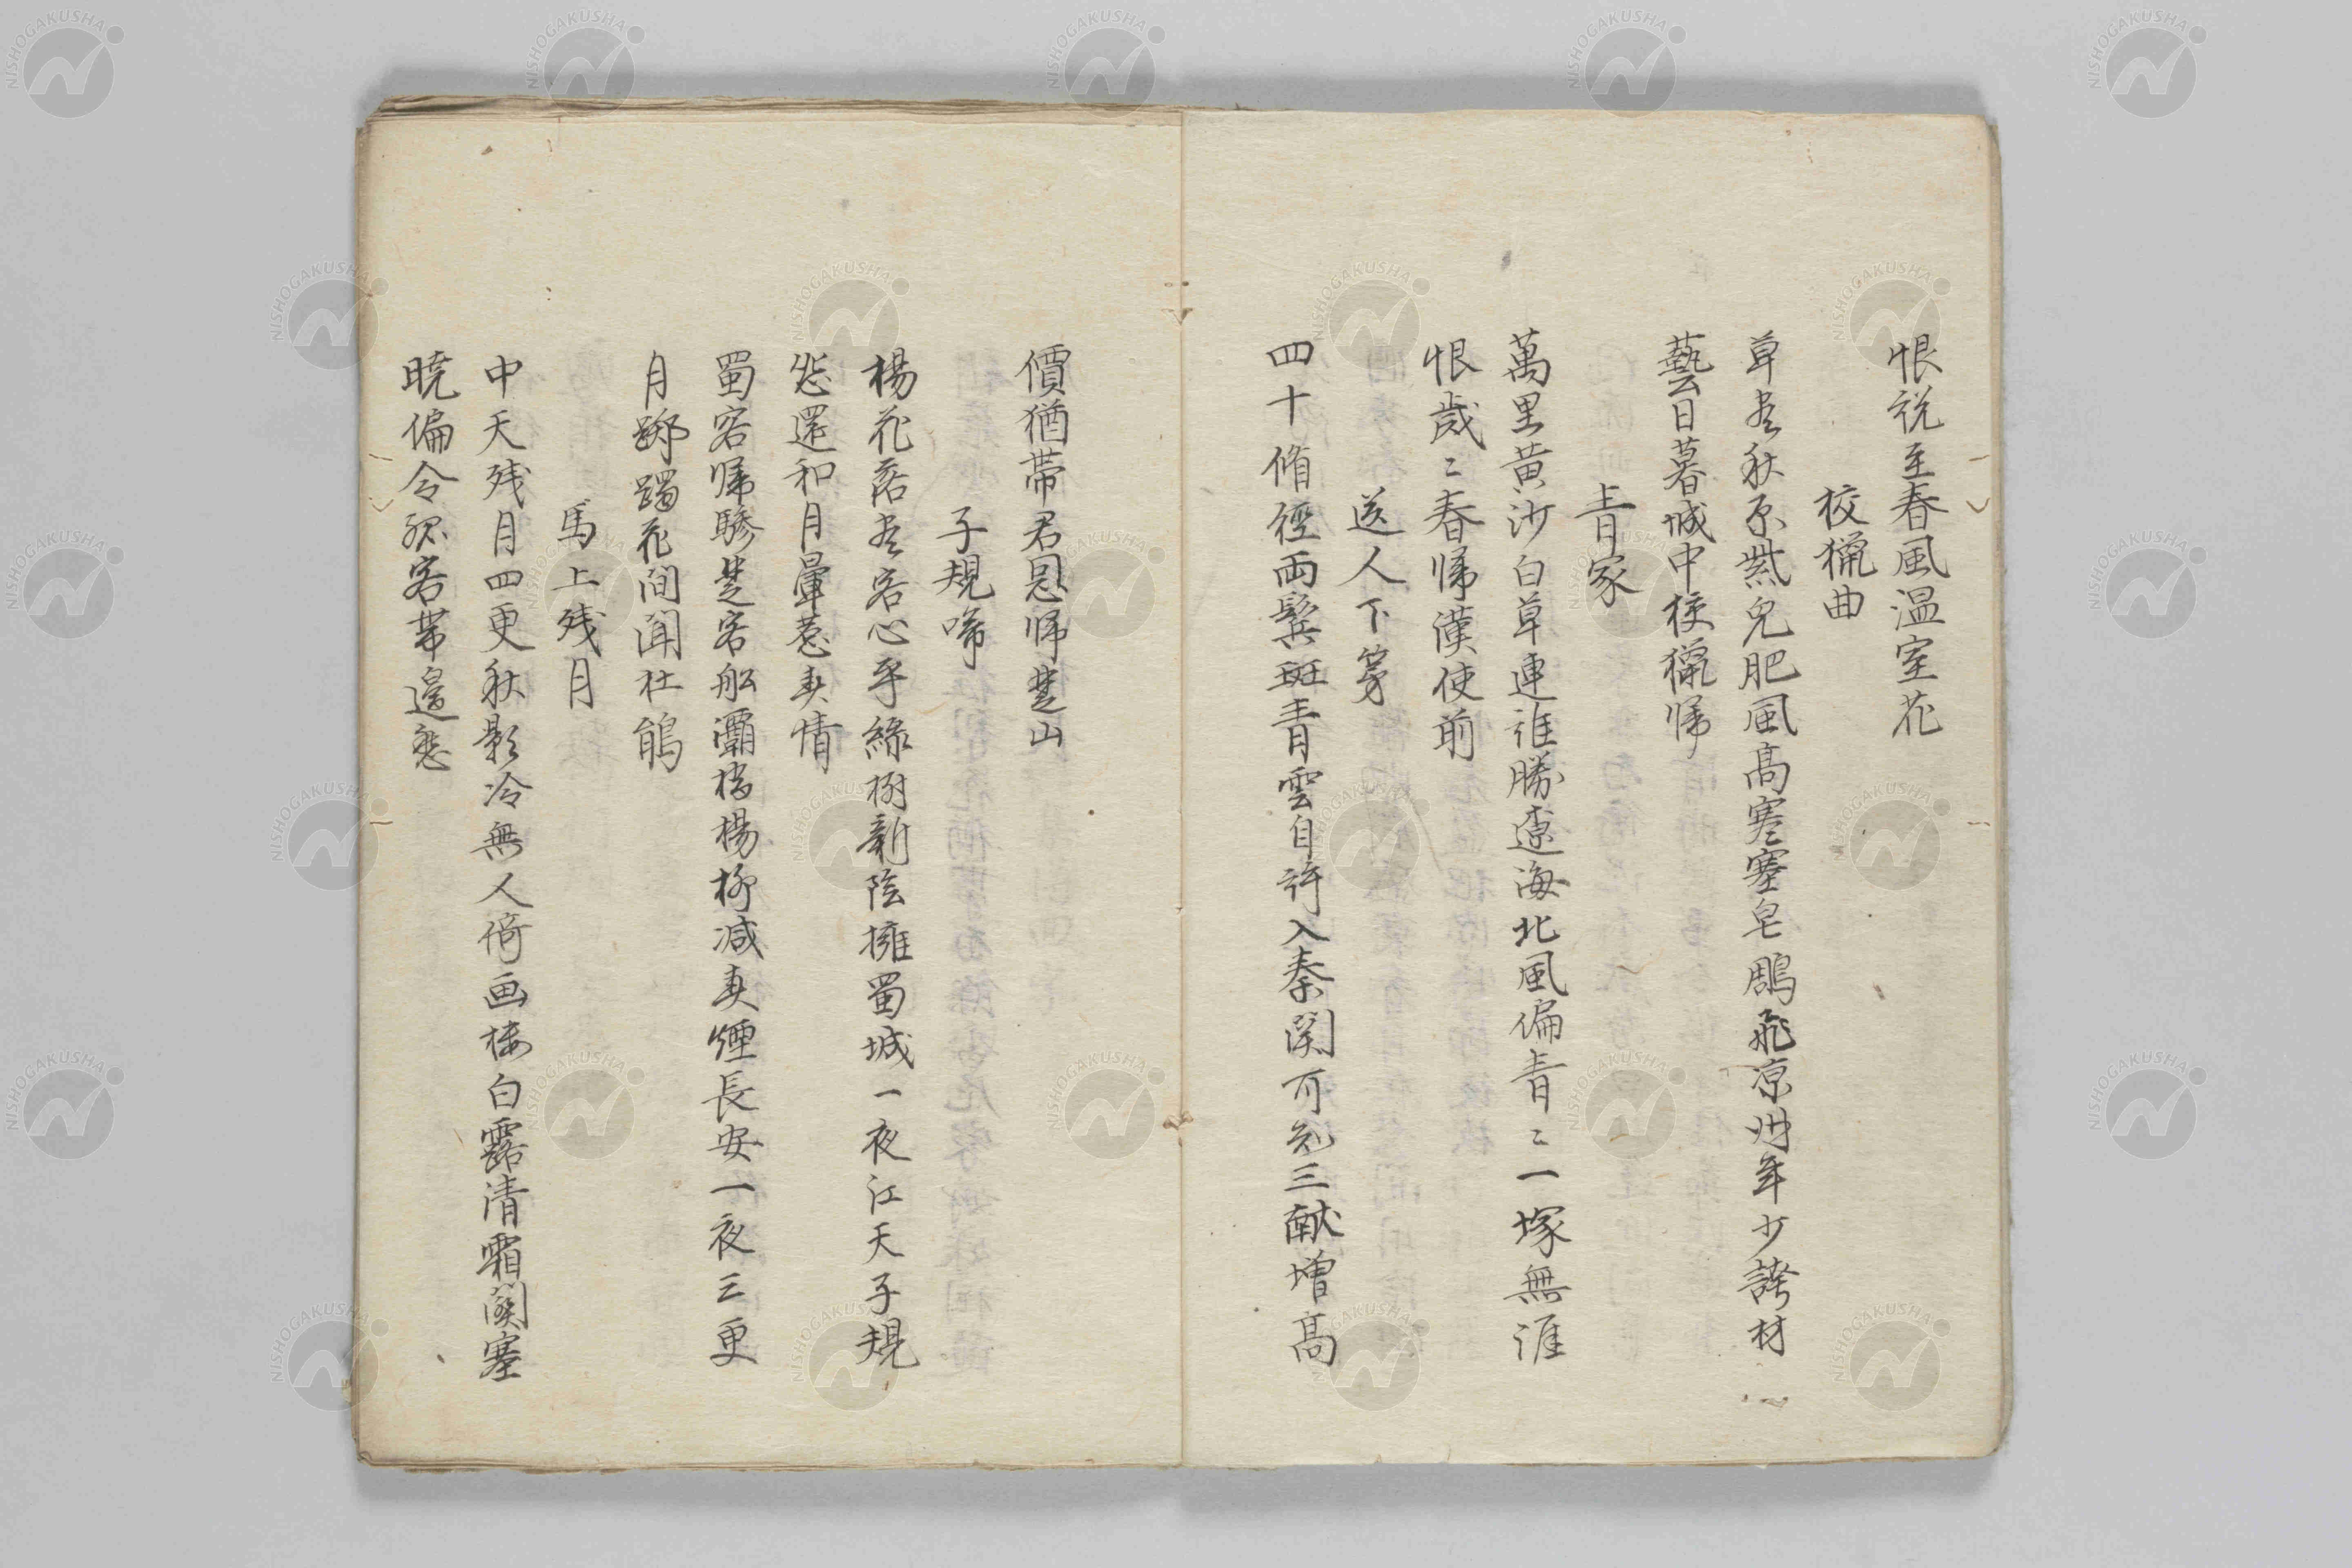 恨説至春風温室花
校獵曲
草尽秋原熊兒肥風高寒塞皂鵰飛凉州年少誇材
藝日暮城中校獵帰
青冢
萬里黄沙白草連誰勝遼海北風偏青〻一塚無涯
恨歳〻春帰漢使前
送人下第
四十脩徑両鬂斑青雲自許入秦関可知三献増高
價猶帯君恩帰楚山
子規啼
楊花落尽客心乎緑樹新陰擁蜀城一夜江天子規
怨還和月暈惹春情
蜀客帰驂楚客舩灞橋楊柳減春煙長安一夜三更
月躑躅花間聞杜鵑
馬上残月
中天残月四更秋影冷無人倚画楼白露清霜関塞
暁偏令孤客帯邉愁
NISHOGAKUSHA